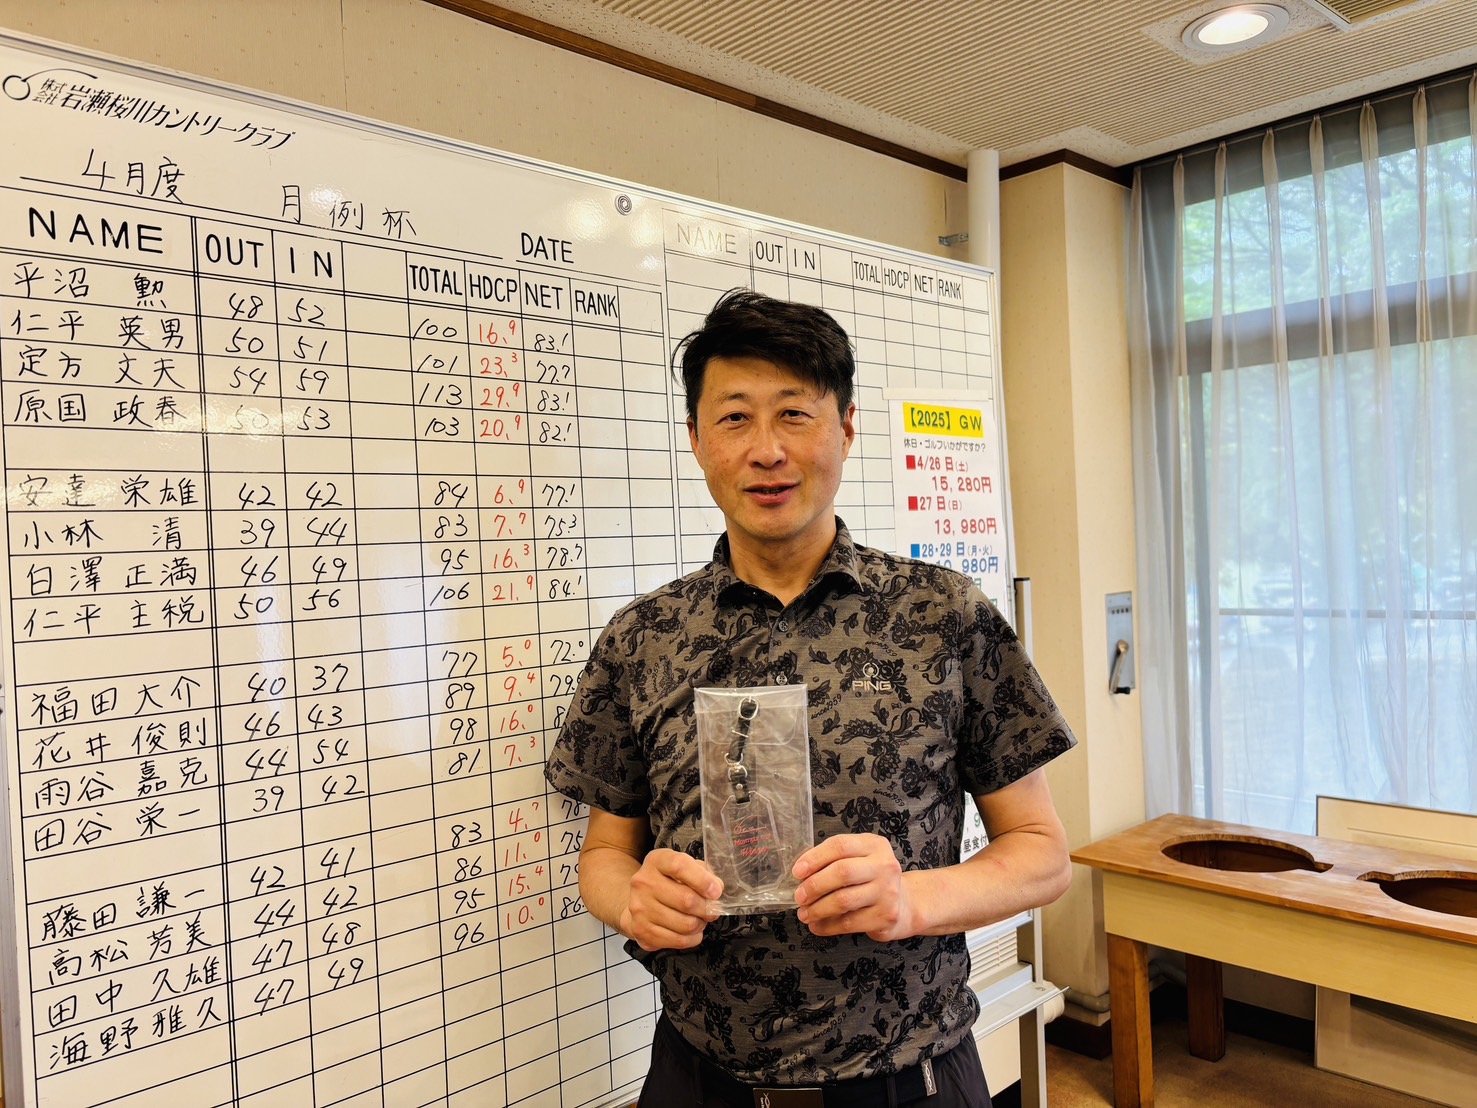 株式会社岩瀬桜川カントリークラブ
4月度 月例杯 DATE
NAME OUT IN TOTAL HDCP NET RANK
平沼 勲 48 52 100 16.9 83.1
仁平 英男 50 51 101 23.3 77.7
定方 丈夫 54 59 113 29.9 83.1
原国 政春 50 53 103 20.9 82.1
安達 栄雄 42 42 84 6.9 77.1
小林 清 39 44 83 7.7 75.3
白澤 正満 46 49 95 16.3 78.7
仁平 主税 50 56 106 21.9 84.1
福田 大介 40 37 77 5.0 72.0
花井 俊則 46 43 89 9.4 79.6
雨谷 嘉克 44 54 98 16.0
田谷 栄一 39 42 81 7.3
藤田 謙一 42 41 83 4.7 78.
高松 芳美 44 42 86 11.0 75.
田中 久雄 47 48 95 15.4
海野 雅久 47 49 96 10.0 86.
NAME OUT IN TOTAL HDCP NET RANK
【2025】GW
休日・ゴルフいかがですか?
■4/26日(土)
15,280円
■27日(日)
13,980円
■28・29日(月・火)
980円
円
昼食付
PING
since1959